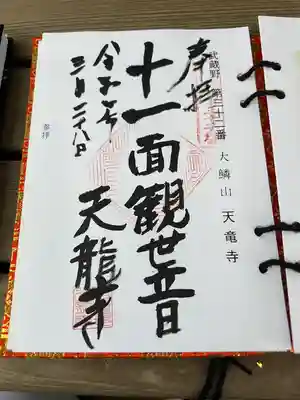 武蔵野 第三十二番
大鱗山 天竜寺
奉拝
十一面観世音
天龍寺
令和七年
三月二十八日
参拝